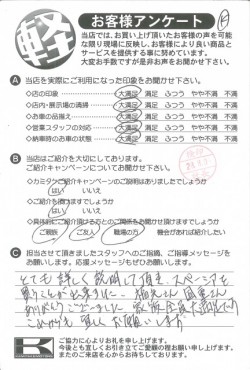 軽
お客様アンケート
当店では、お買い上げ頂いたお客様の声を可能
な限り現場に反映し、お客様により良い商品と
サービスを提供する事に努めています。
大変お手数ですが是非お声をお聞かせ下さい。
A 当店を実際にご利用になった印象をお聞かせ下さい。
◇店の印象 大満足 満足 ふつう やや不満 不満
◇店内・展示場の清掃 大満足 満足 ふつう やや不満 不満
◇お車の品揃え 大満足 満足 ふつう やや不満 不満
◇営業スタッフの対応 大満足 満足 ふつう やや不満 不満
◇納車時のお車の状態 大満足 満足 ふつう やや不満 不満
B 当店はご紹介を大切にしております。
ご紹介キャンペーンについてお聞かせ下さい。
◇カミタケご紹介キャンペーンのご説明はありましたでしょうか
はい いいえ
◇ご紹介を頂けますでしょうか
はい いいえ
◇具体的にご紹介頂けるひとのご関係をお聞かせ頂けますでしょうか
ご親戚 ご友人 職場の方 機会があれば紹介したい
C 担当させて頂きましたスタッフへのご指摘、ご指導メッセージを
お願いします。応援メッセージもぜひお願いします。
とても詳しく説明して頂き、スペーシアを
買うことが出来ました。
ありがとうございました。家族全員大満足です
これからも宜しくお願いします。
ご協力に心よりお礼を申し上げます。
今後とも宜しくお引き立てご愛顧の程お願い申し上げます。
またのご来店を心からお待ちしております。